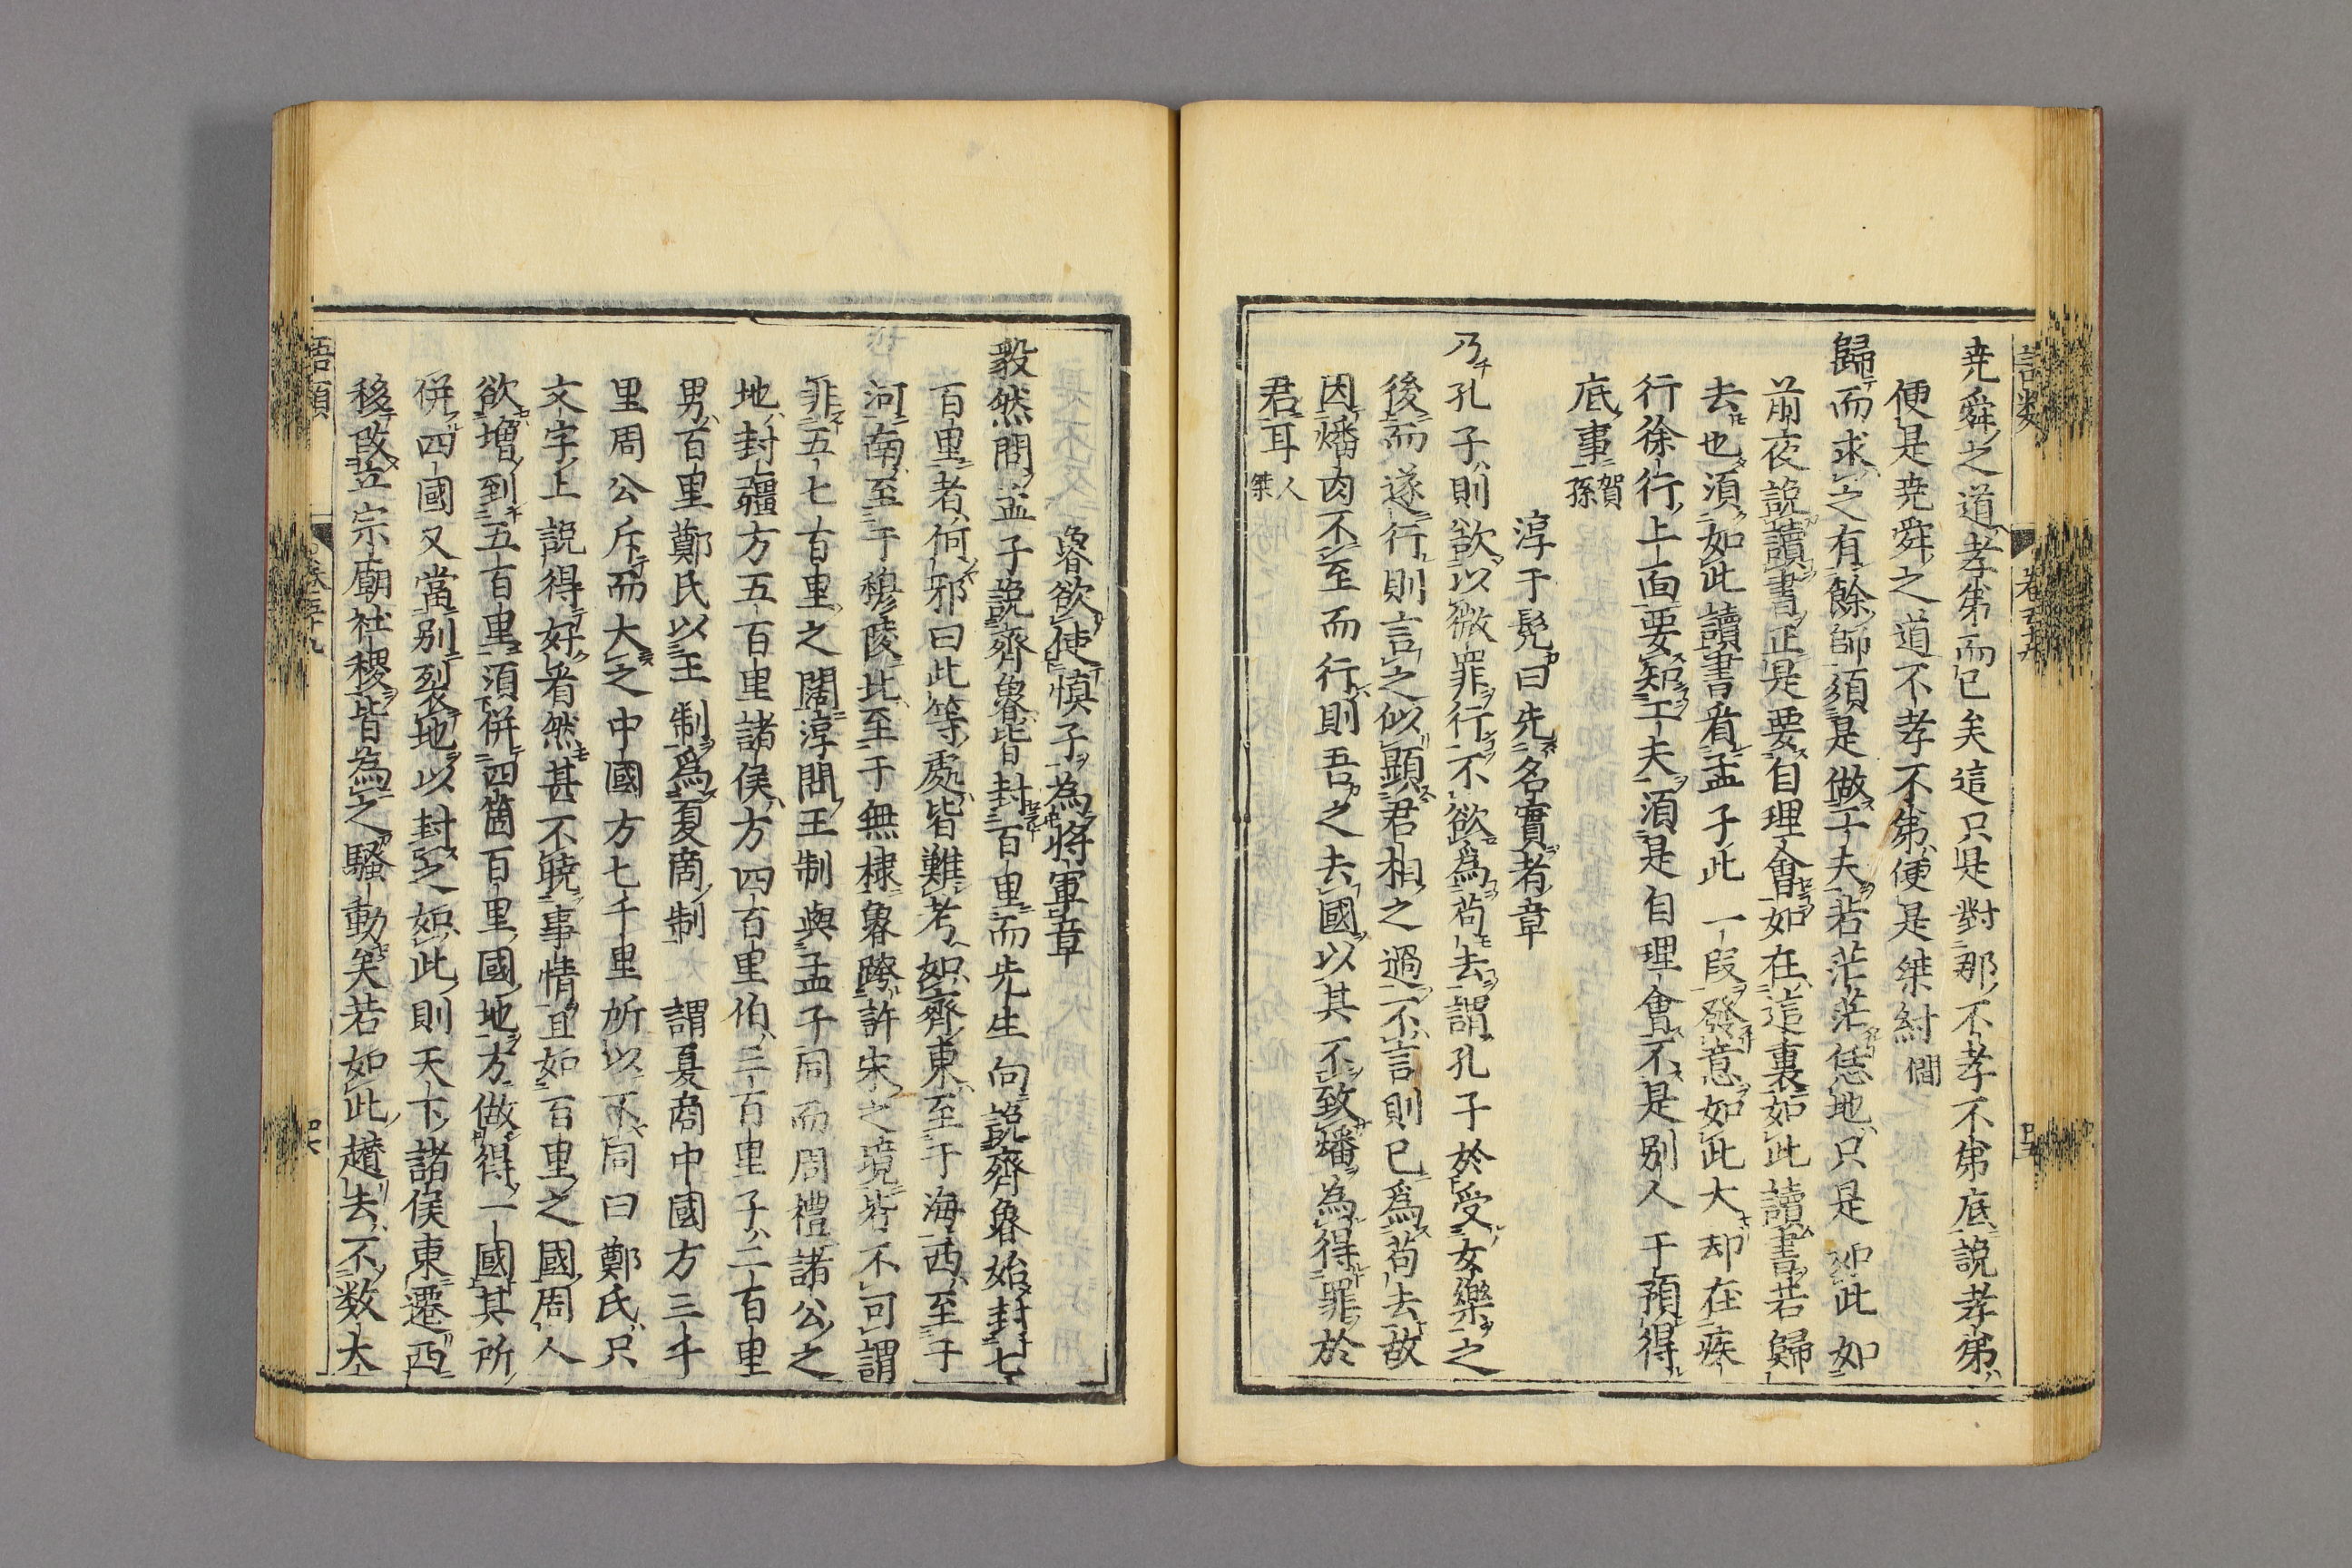 堯舜之道孝弟而已矣這只是對那不孝不弟底說孝弟
便是堯舜之道不孝不弟便是桀紂僩
歸而求之有餘師須是做工夫若茫茫恁地只是如此如
前夜說讀書正是要自理會如在這裏如此讀書若歸
去也須如此讀書看孟子此一段發意如此大却在疾
行徐行上面要知工夫須是自理會不是別人干預得
底事賀孫
淳于髡曰先名實者章
乃孔子則欲以微罪行不欲爲苟去謂孔子於受女樂之
後而遂行則言之似顯君相之過不言則已爲苟去故
因燔肉不至而行則吾之去國以其不致燔為得罪於
君耳人傑
魯欲使慎子為將軍章
毅然問孟子說齊魯皆封百里而先生向說齊魯始封七
百里者何邪曰此等處皆難考如齊東至于海西至于
河南至于穆陵北至于無棣魯跨許宋之境皆不可謂
非五七百里之闊淳問王制與孟子同而周禮諸公之
地封疆方五百里諸侯方四百里伯三百里子二百里
男百里鄭氏以王制爲夏商制謂夏商中國方三千
里周公斥而大之中國方七千里所以不同曰鄭氏只
文字上說得好看然甚不曉事情且如百里之國周人
欲增到五百里須併四箇百里國地方做得一國其所
併四國又當別裂地以封之如此則天下諸侯東遷西
移改立宗廟社稷皆為之騷動矣若如此趲去不数大
語類 卷五十九